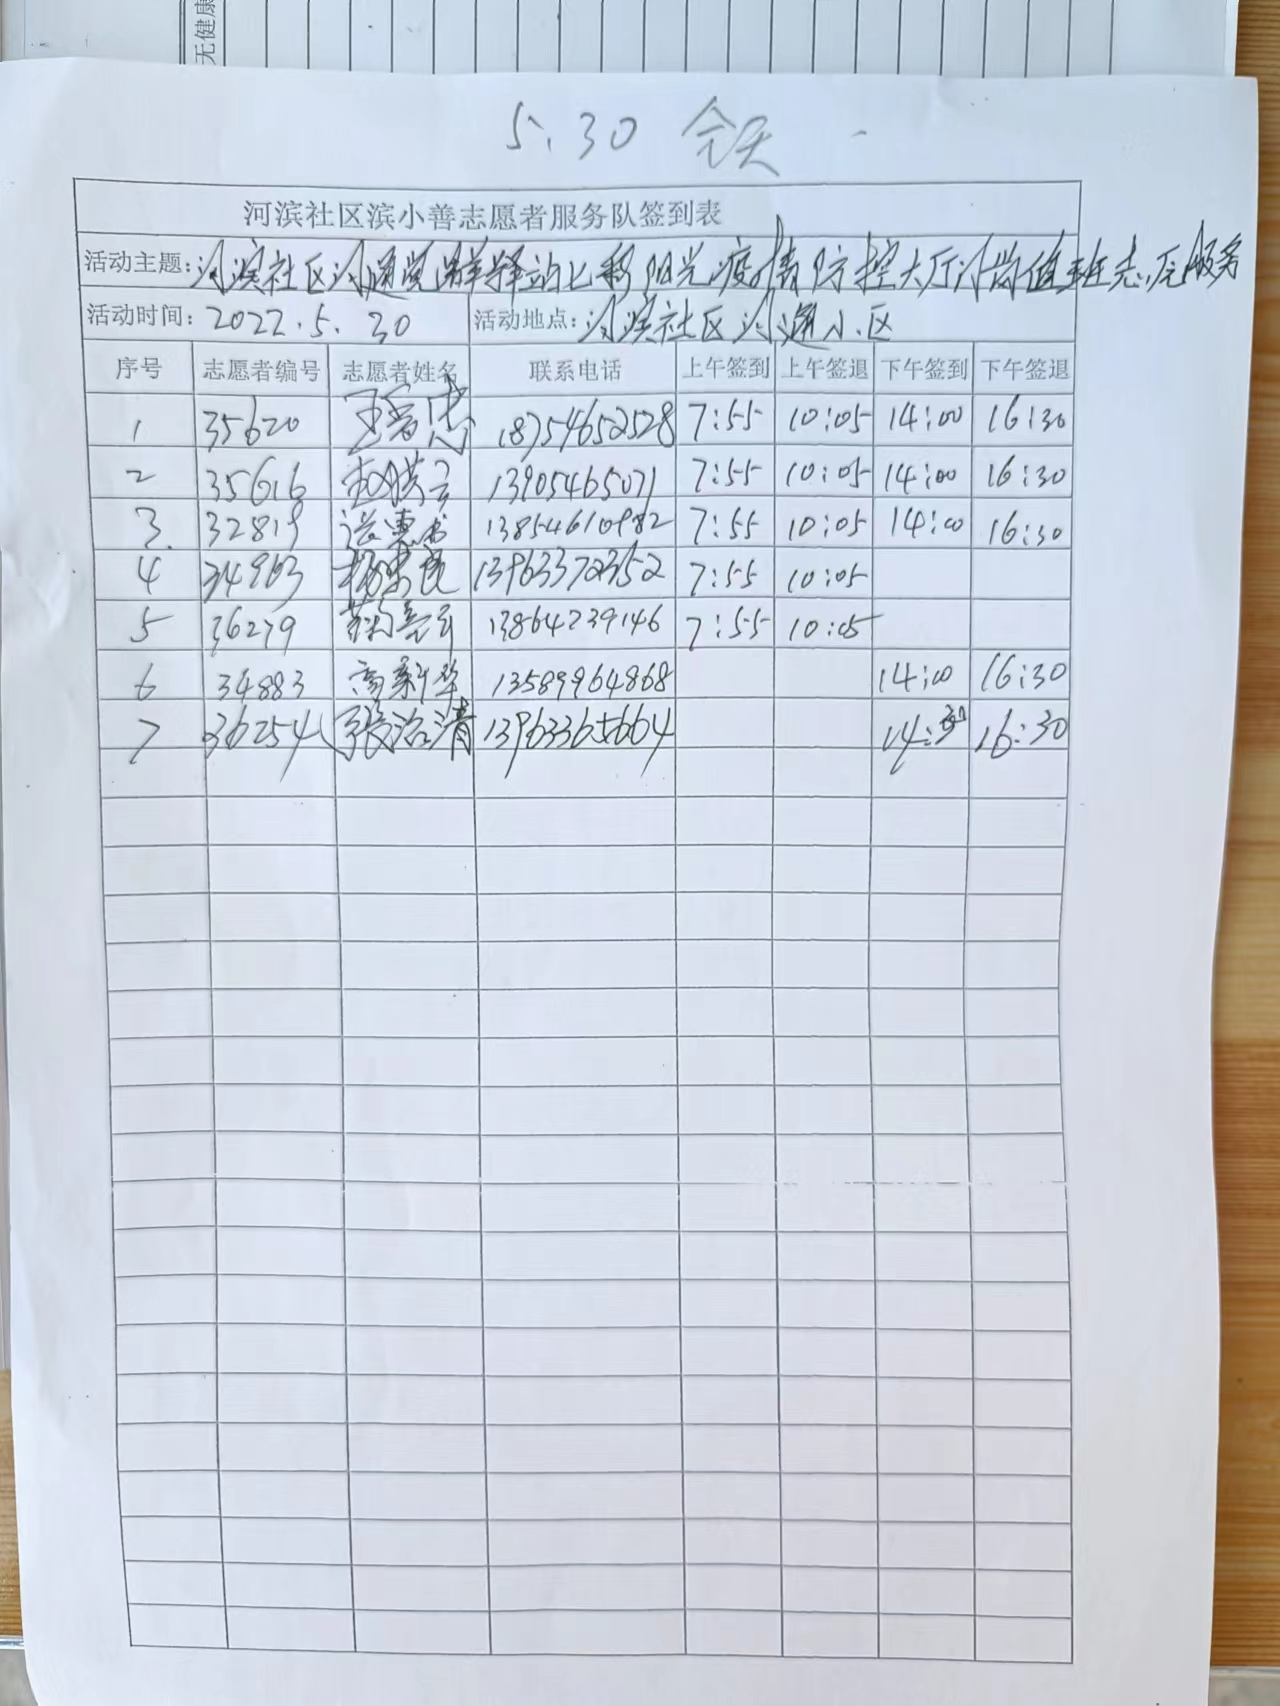 无健康
5.30 今天
河滨社区滨小善志愿者服务队签到表
活动主题:河滨社区河通党群驿站七彩阳光疫情防控大厅门岗值班志愿服务
活动时间: 2022.5.30 活动地点: 河滨社区河通小区
序号 志愿者编号 志愿者姓名 联系电话 上午签到 上午签退 下午签到 下午签退
1 35620 18754652528 7:55 10:05 14:00 16:30
2 35616 13905465071 7:55 10:05 14:00 16:30
3. 32819 13854610982 7:55 10:05 14:00 16:30
4 34963 13963372352 7:55 10:05
5 36279 13864739146 7:55 10:05
6 34883 高新华 13589964868 14:00 16:30
7 36254 张治清 13963365664 16:30